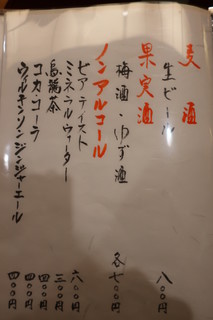 麦酒
生ビール 八〇〇円
果実酒
梅酒・ゆず酒 各七〇〇円
ノンアルコール
ビアテイスト 六〇〇円
ミネラルウォーター 三〇〇円
烏龍茶 四〇〇円
コカ・コーラ 四〇〇円
ウィルキンソンジンジャーエール 四〇〇円